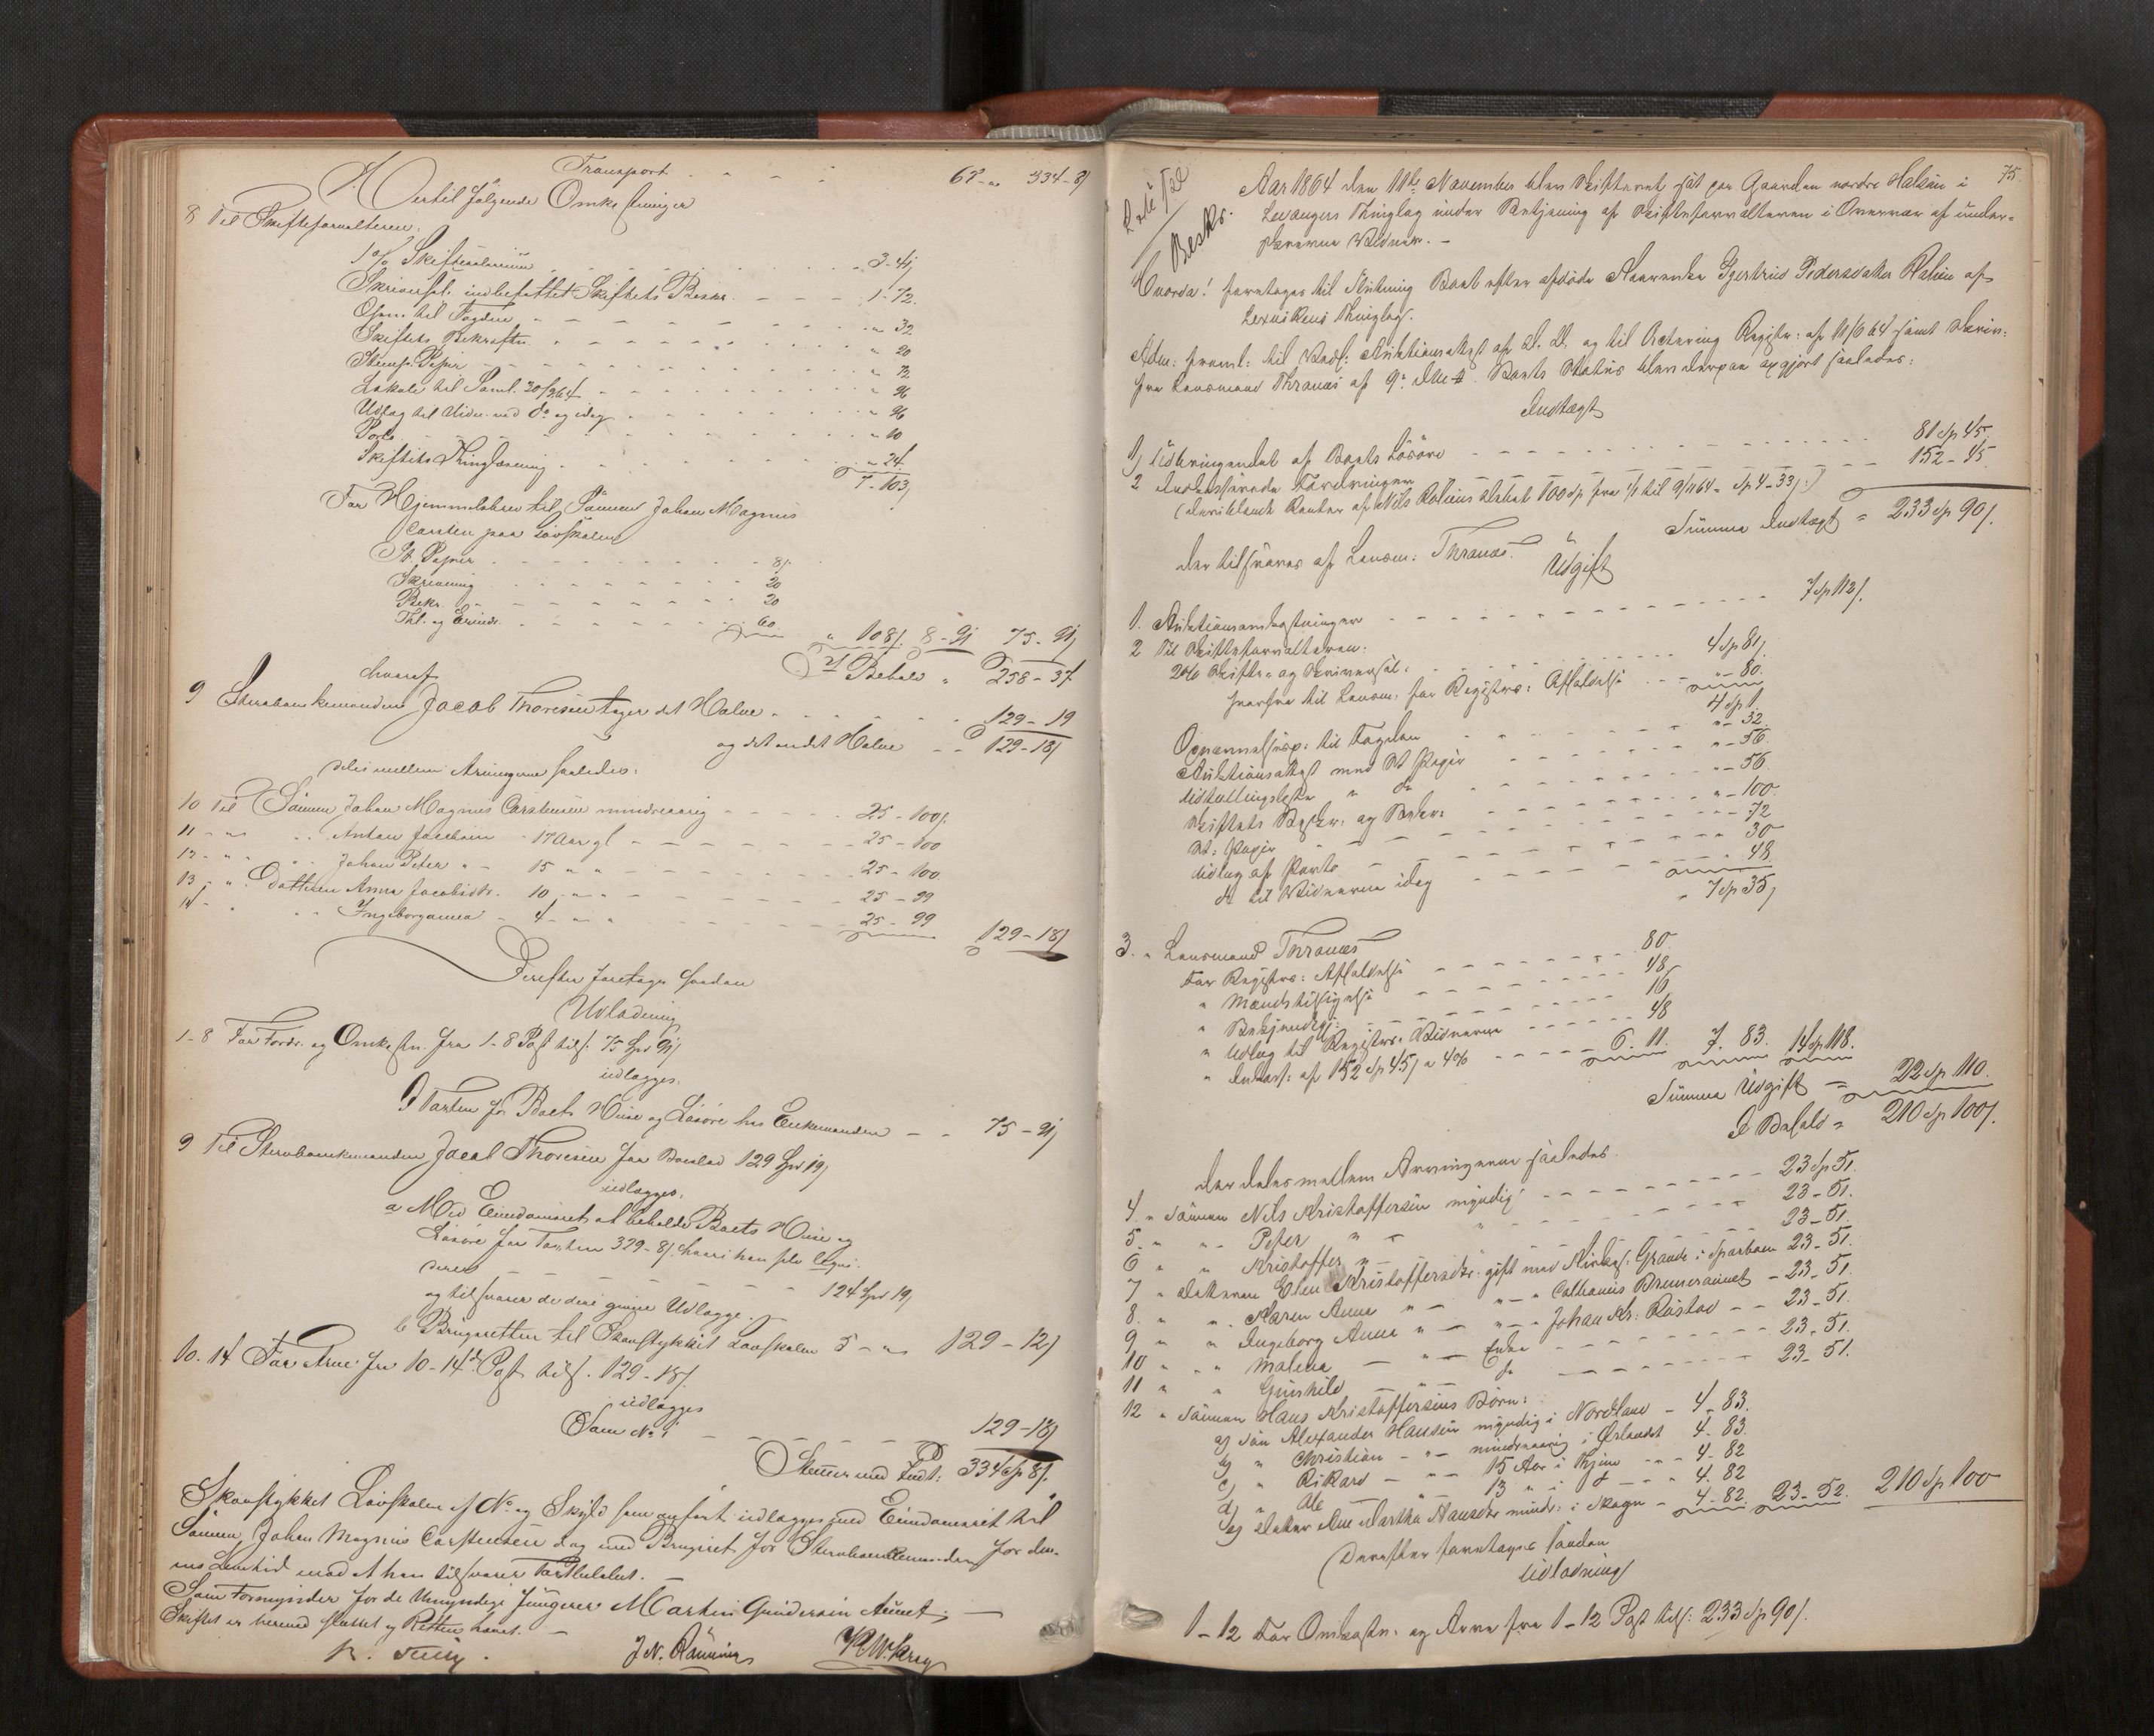 Transport - - - - 68 - " 334 - 8/
Hertil følgende Omkostninger
8 Til Skifteforvalteren.
1% Skiftesalarium - - - - 3 - 41/
Skriversal. indbefattet Skiftets Beskr. - - - 1 - 72.
til Fogden " - - - - " 32
Skiftets Bekræftn. - - - - " 20
Stemp. Papir - - - - " 72
Lokale til Saml. 30/3 64 - - - - " 96
Udlæg til Vidn. ved do og idag - - - " 96
Porto - - - - " 10
Skiftets Thinglæsning - - - - " 24.
7 - 103/
For Hjemmelsbrev til Sönnen Johan Magnus
Carsten paa Lövskalen
St. Papir - - - - 8/.
Skrivning - - - - 20
Bekr. - - - - 20
Thl. og Erindr. - - - - 60.
" 108/. 8 - 91 75 - 91/
I Behold " 258 - 37
hvoraf
9 Stervboenkemanden Jacob Thoresen tager det Halve - - - 129 - 19
og det andet Halve - - 129 - 18/
deles mellem Arvingerne saaledes:
10 Til Sönnen Johan Magnus Carstensen mindreaarig - - - 25 - 100/.
11 - " " - Anton Jacobsen - 17 Aar gl - - - 25 - 100
12 - " " - Johan Peter " - 15 " " - - - 25 - 100
13 - " Datteren Anna Jacobsdtr. 10 " " - - - 25 - 99
14 - " " - Ingeborganna - 4 - " " - - - 25 - 99
129 - 18/
Derefter foretages saadan
Udlodning
1-8 For Fordr. og Omkostn. fra 1-8 Post tils. 75 Spd 91/
udlægges.
I Taxten for Boets Huse og Løsøre hos Enkemanden - - 75 - 91/
9 Til Stervboenkemanden Jacob Thoresen for Boeslod 129 Spd 19/
udlægges,
a Med Eiendomsret at beholde Boets Huse og
Løsøre for Taxten 329 - 8/. hvori han selv
derer - - - - 124 Spd 19/
og tilsvarer de deri givne Udlægge.
b Brugsretten til Skovstykket Lovskalen 5 - " 129 - 19/
10-14 For Arve fra 10-14de Post tils. 129 - 18/.
udlægges
Sam No 1 - - - - 129 - 18/
Stemmer med Indt: 334 Sp 8/.
Skovstykket Lövskalen af No. og Skyld som anført udlægges med Eiendomsret til
Sönnen Johan Magnus Carstensen dog med Brugsret for Stervboenkemanden for den-
nes Levetid mod at han tilsvarer Taxtbeløbet. -
Som Formynder for de Umyndige fungerer Martin Gundersen Aunet; -
Skiftet er hermed sluttet og Retten hævet. -
J. N. Rönning
75.
Beskr.
Aar 1864 den 11te November blev Skifteret sat paa Gaarden nordre Halsen i
Levangers Thinglag under Betjening af Skifteforvalteren i Overvær af under-
skrevne Vidner. -
Hvorda! foretoges til Slutning Boet efter afdøde Gaardenke Gjertrud Pedersdatter Halsen af
Lexvikens Thinglag.
Adm: freml: til Vedl: Auktionsakst af d. D. og til Actering Registr: af 11/6 64 samt Skriv:
fra Lensmand Thranæs af 9de ds. Boets Status blev derpaa opgjort saaledes:
Indtægt
1) Udbringendet af Boets Løsöre - - - - 81 Sp 45/.
2 Indkasserede Fordringer - - - - 152 - 45.
(deriblandt Renter af Nils Rolsius Debet 100 Sp fra 1/1 til 9/11 64 = Sp 4 - 33/:)
Summa Indtægt = 233 Sp 90/.
der tilsvares af Lensm: Thranæs.
Udgift
1. Auktionsomkostninger - - - - 7 Sp 112/.
2 Til Skifteforvalteren:
2% Skifte- og Skriversal: - - - 4 Sp 81/.
hvorfra til Lensm. for Registrs: Afholdelse - - " - 80.
4 Sp 1.
til Fogden - - - " - 32.
Auktionsakst med St Papir - - - " - 56.
Udtællingsliste " do - - - " - 56.
Skiftets Beskr: og Bekr: - - - " - 100.
St: Papir - - - - 72
Udlæg af Porto - - - - 30
do til Vidnerne idag - - - - 48.
" 7 Sp 35/
3. " Lensmand Thranæs
For Registrs: Afholdelse - - - 80.
" Mænds tilsigelse - - - 48.
" Bekjendtgj: - - - 16
" Udlæg til Registrs: Vidnerne - - - 48
" Indkass: af 152 Sp 45/ a 4% - - - 6. 11. 7. 83. 14 Sp 118.
Summa Udgift = 22 Sp 110.
I Behold = 210 Sp 100/.
der deles mellem Arvingerne saaledes.
4. " Sönnen Nils Kristoffersen myndig - - - 23 Sp 51.
5. " " - Peter " - " - - - 23 - 51.
6 " " Kristoffer " - - - - 23 - 51.
7 " Datteren Elen Kristoffersdtr. gift med Grande i Sparboen 23 - 51.
8. " " Karen Anna " - " - " Cathrinus Bremeraunet - 23 - 51.
9 " " Ingeborg Anna " - " - " Johan Kr: Röstad - - 23 - 51.
10 " " Malena - " - Enke - - - 23 - 51.
11 " " Gunhild - " - do - - - 23 - 51.
12 " Sönnen Hans Kristoffersens Børn:
a) Sön Alexander Hansen myndig i Nordland - 4 - 83.
b) " Christian - " - mindreaarig i Ørlandet 4 - 83.
c) " Rikard - " - 15 Aar i Hjem - - - 4 - 82
d) " Ole - " - 13 " i do - - - 4. 82
e) Datter Ane Martha Hansdtr mindr. i Skogn - 4 - 82. 23 - 52. 210 Sp 100
Derefter foretages saadan
Udlodning
1-12 For Omkostn. og Arve fra 1-12 Post tils: 233 Sp 90/.